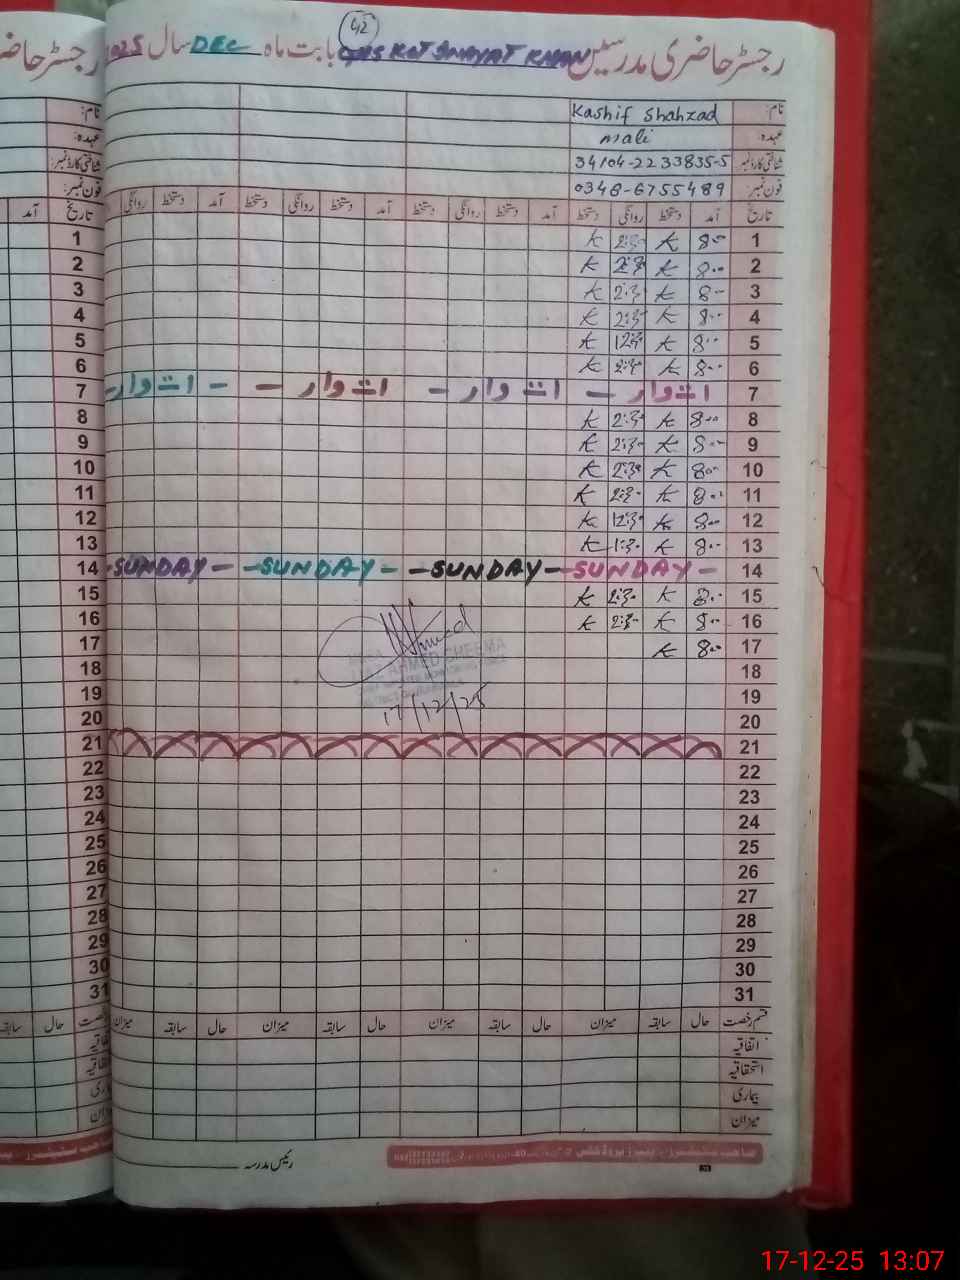 42
رجسٹر حاضری مدرسین GHS KOT INAYAT KHAN بابت ماہ DEC سال 2025
نام: Kashif Shahzad
عہدہ: mali
شناختی کارڈ نمبر: 34104-2233835-5
فون نمبر: 0346-6755489
تاریخ آمد دستخط روانگی دستخط آمد دستخط روانگی دستخط آمد دستخط روانگی دستخط آمد دستخط روانگی
1 8:00 K 2:30 K
2 8:00 K 2:30 K
3 8:00 K 2:30 K
4 8:00 K 2:30 K
5 8:00 K 12:30 K
6 8:00 K 2:30 K
7 اتوار - اتوار - اتوار - اتوار -
8 8:00 K 2:30 K
9 8:00 K 2:30 K
10 8:00 K 2:30 K
11 8:00 K 2:30 K
12 8:00 K 12:30 K
13 8:00 K 1:30 K
14 -SUNDAY- -SUNDAY- -SUNDAY- SUNDAY-
15 8:00 K 2:30 K
16 8:00 K 2:30 K
17 8:00 K
AHMED CHEEMA
17/12/25
18
19
20
21
22
23
24
25
26
27
28
29
30
31
قسم رخصت حال سابقہ میزان حال سابقہ میزان حال سابقہ میزان حال سابقہ میزان
اتفاقیہ
استحقاقیہ
بیماری
میزان
رئیس مدرسہ
17-12-25 13:07